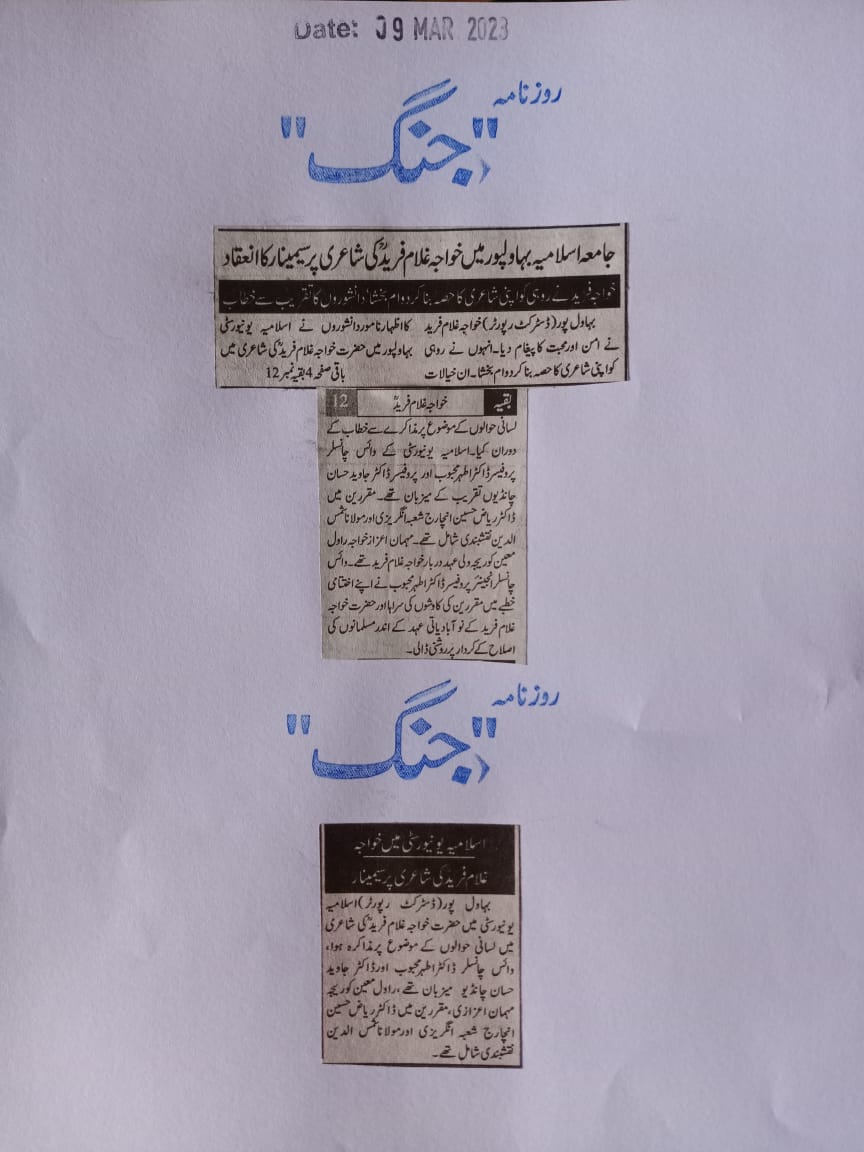 Date: 09 MAR 2023
روزنامہ
"جنگ"
جامعہ اسلامیہ بہاولپور میں خواجہ غلام فریدؒ کی شاعری پر سیمینار کا انعقاد
خواجہ فرید نے روہی کو اپنی شاعری کا حصہ بنا کر دوام بخشا، دانشوروں کا تقریب سے خطاب
بہاول پور (ڈسٹرکٹ رپورٹر) خواجہ غلام فرید
نے امن اور محبت کا پیغام دیا۔ انہوں نے روہی
کو اپنی شاعری کا حصہ بنا کر دوام بخشا۔ ان خیالات
کا اظہار نامور دانشوروں نے اسلامیہ یونیورسٹی
بہاولپور میں حضرت خواجہ غلام فریدؒ کی شاعری میں
باقی صفحہ 4 بقیہ نمبر 12
بقیہ خواجہ غلام فریدؒ 12
لسانی حوالوں کے موضوع پر مذاکرے سے خطاب کے
دوران کیا۔ اسلامیہ یونیورسٹی کے وائس چانسلر
پروفیسر ڈاکٹر اطہر محبوب اور پروفیسر ڈاکٹر جاوید حسان
چانڈیوں تقریب کے میزبان تھے۔ مقررین میں
ڈاکٹر ریاض حسین انچارج شعبہ انگریزی اور مولانا شمس
الدین نقشبندی شامل تھے۔ مہمان اعزاز خواجہ راول
معین کوریجہ ولی عہد دربار خواجہ غلام فرید تھے۔ وائس
چانسلر انجینئر پروفیسر ڈاکٹر اطہر محبوب نے اپنے اختتامی
خطبے میں مقررین کی کاوشوں کی سراہا اور حضرت خواجہ
غلام فرید کے نو آبادیاتی عہد کے اندر مسلمانوں کی
اصلاح کے کردار پر روشنی ڈالی۔
روزنامہ
"جنگ"
اسلامیہ یونیورسٹی میں خواجہ
غلام فرید کی شاعری پر سیمینار
بہاول پور (ڈسٹرکٹ رپورٹر) اسلامیہ
یونیورسٹی میں حضرت خواجہ غلام فریدؒ کی شاعری
میں لسانی حوالوں کے موضوع پر مذاکرہ ہوا،
وائس چانسلر ڈاکٹر اطہر محبوب اور ڈاکٹر جاوید
حسان چانڈیو میزبان تھے، راول معین کوریجہ
مہمان اعزازی، مقررین میں ڈاکٹر ریاض حسین
انچارج شعبہ انگریزی اور مولانا شمس الدین
نقشبندی شامل تھے۔